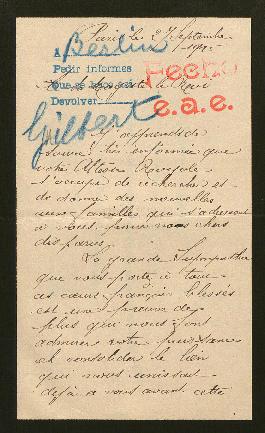 Paris le 27 Septembre
1915
Berlin
Pedir informes
Fecho
Que se haga saber
Sa Majesté le Roi
Devolver
e.a.e.
Gilbert
J'apprends de
source bien informée que
votre Altesse Royale
s'occupe de recherches et
de donne des nouvelles
aux familles qui s'adressent
à vous pour nos chers
disparus.
La grande Sympathie
que vous porte à tous
ces cœurs français blessés
est une preuve de
plus qui nous font
admirer votre puissance
et consolider le lien
qui nous unissait
déjà à vous avant cette